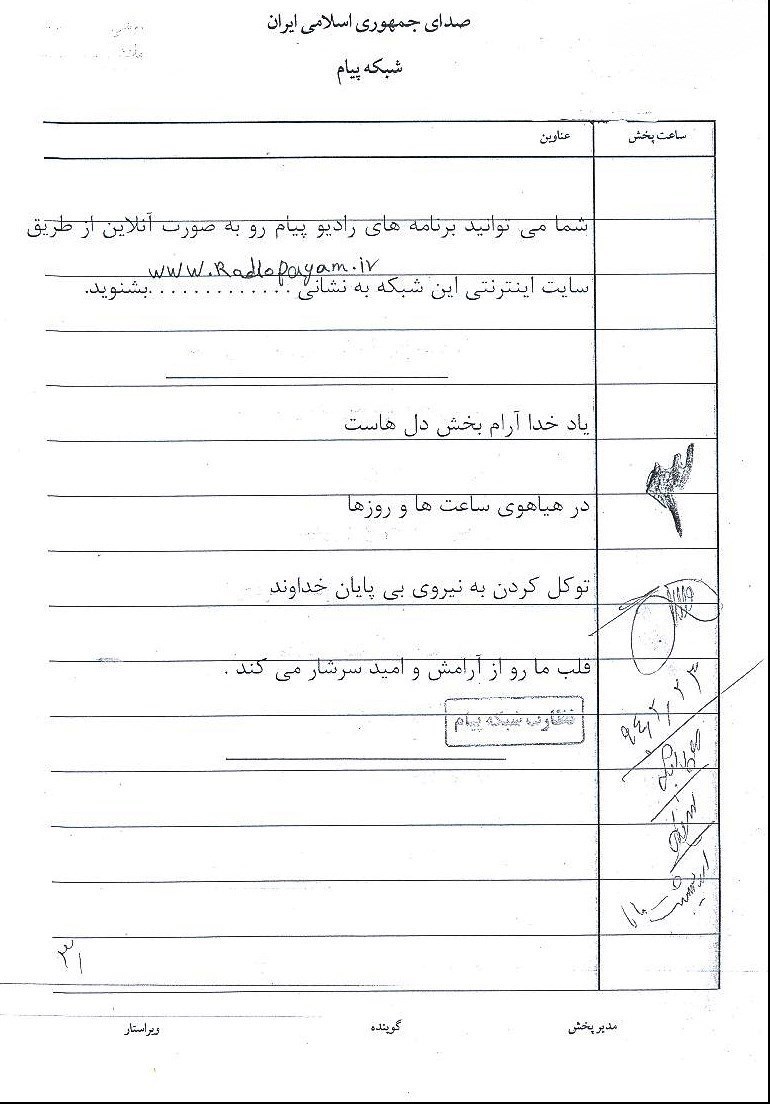 صدای جمهوری اسلامی ایران
شبکه پیام
ساعت پخش
عناوین
شما می توانید برنامه های رادیو پیام رو به صورت آنلاین از طریق
www.Radiopayam.ir
سایت اینترنتی این شبکه به نشانی .............بشنوید.
یاد خدا آرام بخش دل هاست
در هیاهوی ساعت ها و روزها
توکل کردن به نیروی بی پایان خداوند
قلب ما رو از آرامش و امید سرشار می کند .
نظارت شبکه پیام
مدیر پخش
گوینده
ویراستار